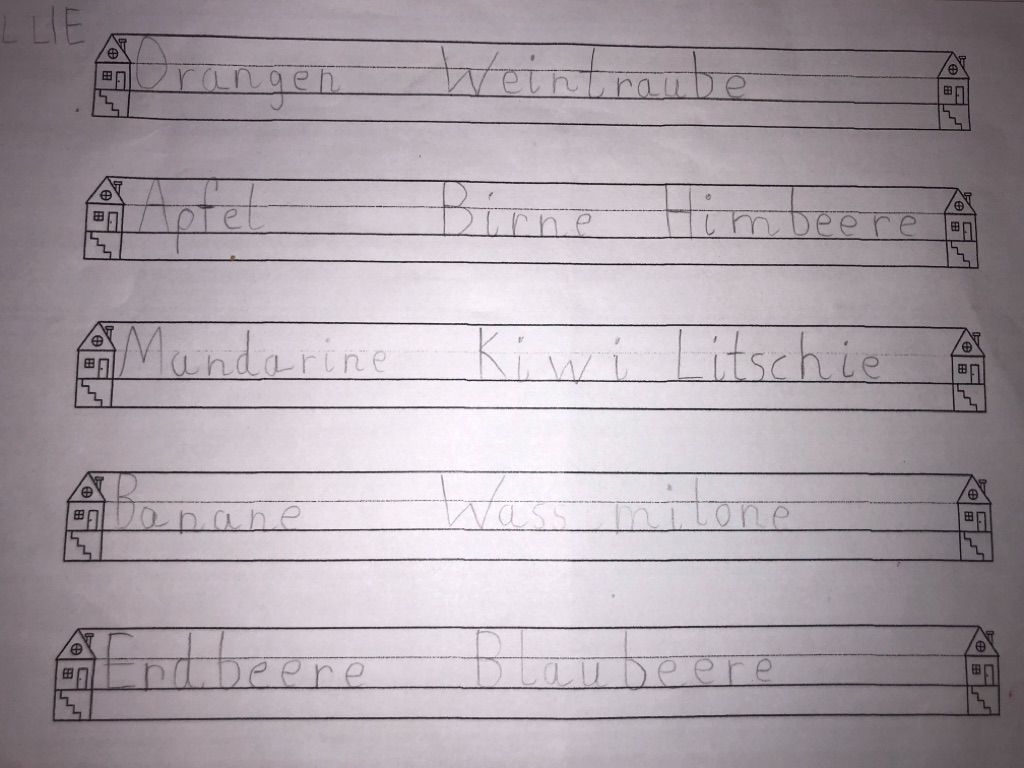 LLIE
Orangen Weintraube
Apfel Birne Himbeere
Mandarine Kiwi Litschie
Banane Wass milone
Erdbeere Blaubeere